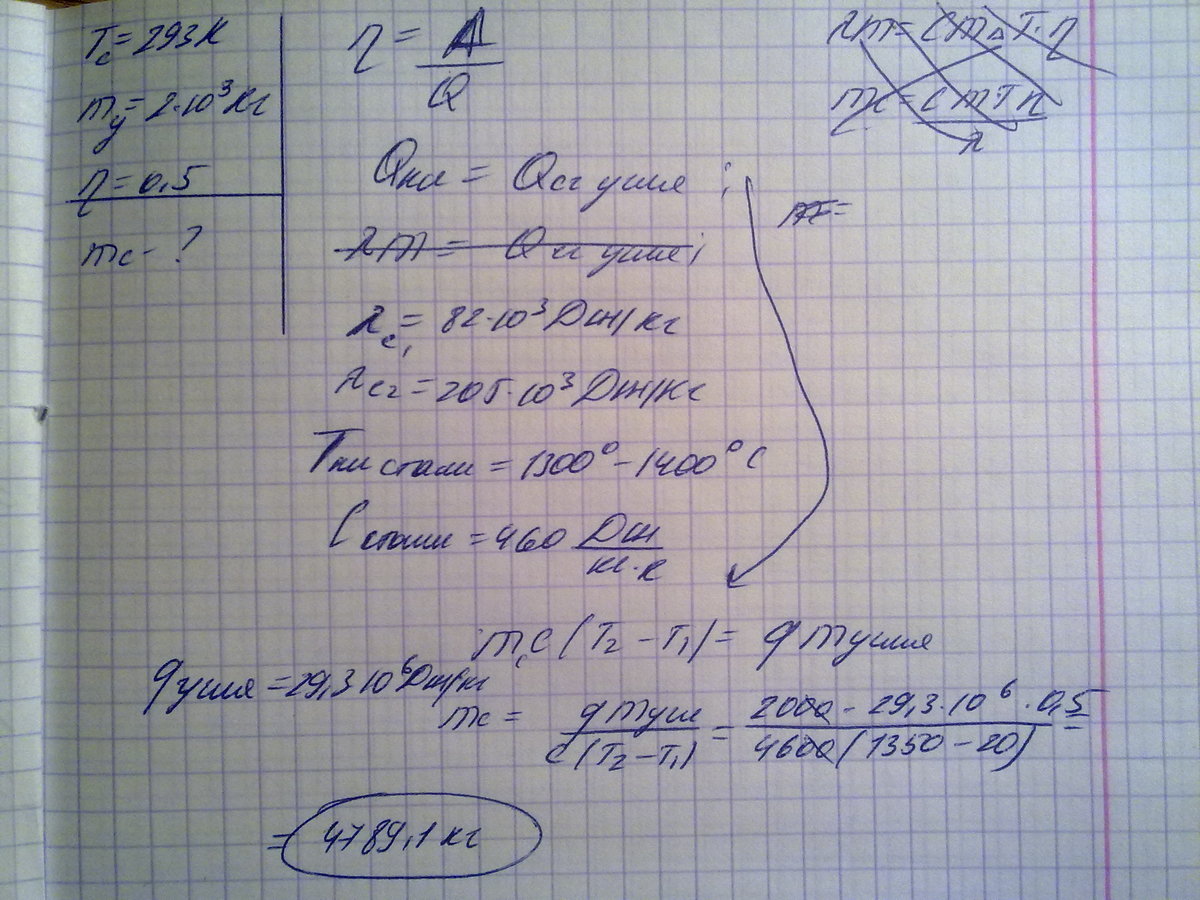 Tc = 293К
mу = 2·10³ Кг
η = 0,5
mc - ?
η = A/Q
Qпл = Qсг угля ;
λm = Qсг угля ;
λc₁ = 82·10³ Дж/кг
λc₂ = 205·10³ Дж/кг
Tпл стали = 1300° - 1400° C
Cстали = 460 Дж/кг·К
λm = Cm△T·η
mc = CmTη/λ
m =
mcC(T₂ - T₁) = qmугля
qугля = 29,3 10⁶ Дж/кг
mc = qmугл/C(T₂ - T₁) = 2000 - 29,3·10⁶·0,5/4600(1350 - 20) =
= 4789,1 кг